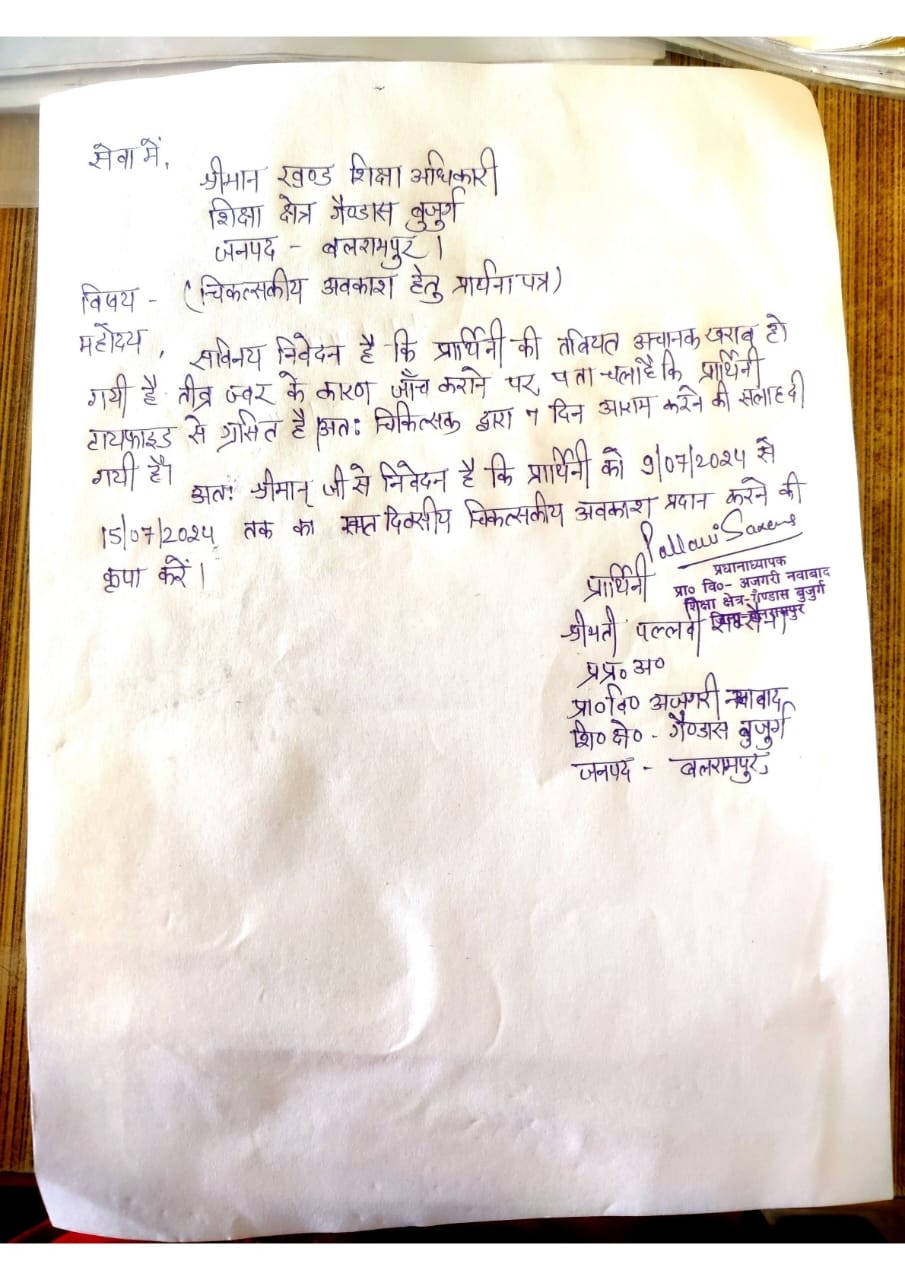 सेवा में,
श्रीमान खण्ड शिक्षा अधिकारी
शिक्षा क्षेत्र गैण्डास बुजुर्ग
जनपद - बलरामपुर।
विषय - (चिकत्सकीय अवकाश हेतु प्रार्थना पत्र)
महोदय,
सविनय निवेदन है कि प्रार्थिनी की तबियत अचानक खराब हो
गयी है तीव्र ज्वर के कारण जाँच कराने पर पता चला है कि प्रार्थिनी
टायफाइड से ग्रसित है। अतः चिकित्सक द्वारा 7 दिन आराम करने की सलाह दी
गयी है।
अतः श्रीमान् जी से निवेदन है कि प्रार्थिनी को 9/07/2024 से
15/07/2024 तक का सप्त दिवसीय चिकित्सकीय अवकाश प्रदान करने की
कृपा करें।
Pallavi Saxena
प्रधानाध्यापक
प्रा० वि०- अजगरी नवाबाद
शिक्षा क्षेत्र-गैण्डास बुजुर्ग
प्रार्थिनी
श्रीमती पल्लवी
प्रप्र० अ०
प्रा० वि० अजगरी नवाबाद
शि० क्षे० - गैण्डास बुजुर्ग
जनपद - बलरामपुर